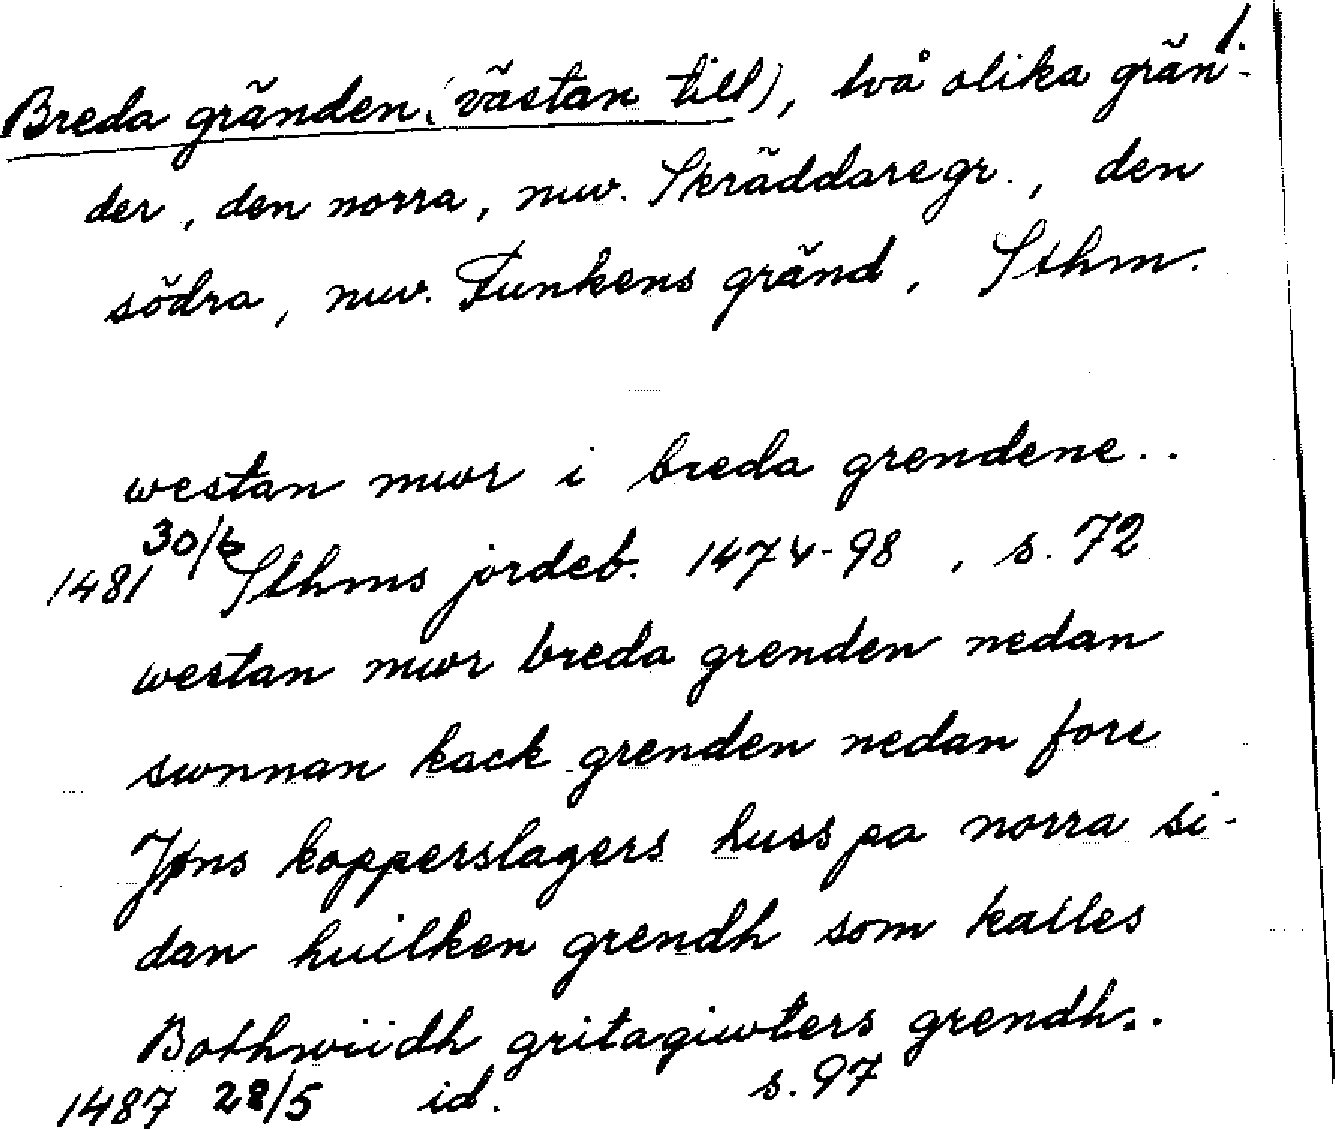 1.
Breda gränden (västan till), två olika grän-
der, den norra, nuv. Skräddaregr., den
södra, nuv. Funkens gränd, Sthm.
westan mwr i breda grendene..
1481 30/6 Sthms jordeb. 1474-98, s. 72
westan mwr breda grenden nedan
swnnan kack grenden nedan fore
Jøns kopperslagers huss pa norra si-
dan huilken grendh som kalles
Bothwiidh gritagiwters grendh..
1487 28/5 id. s. 97